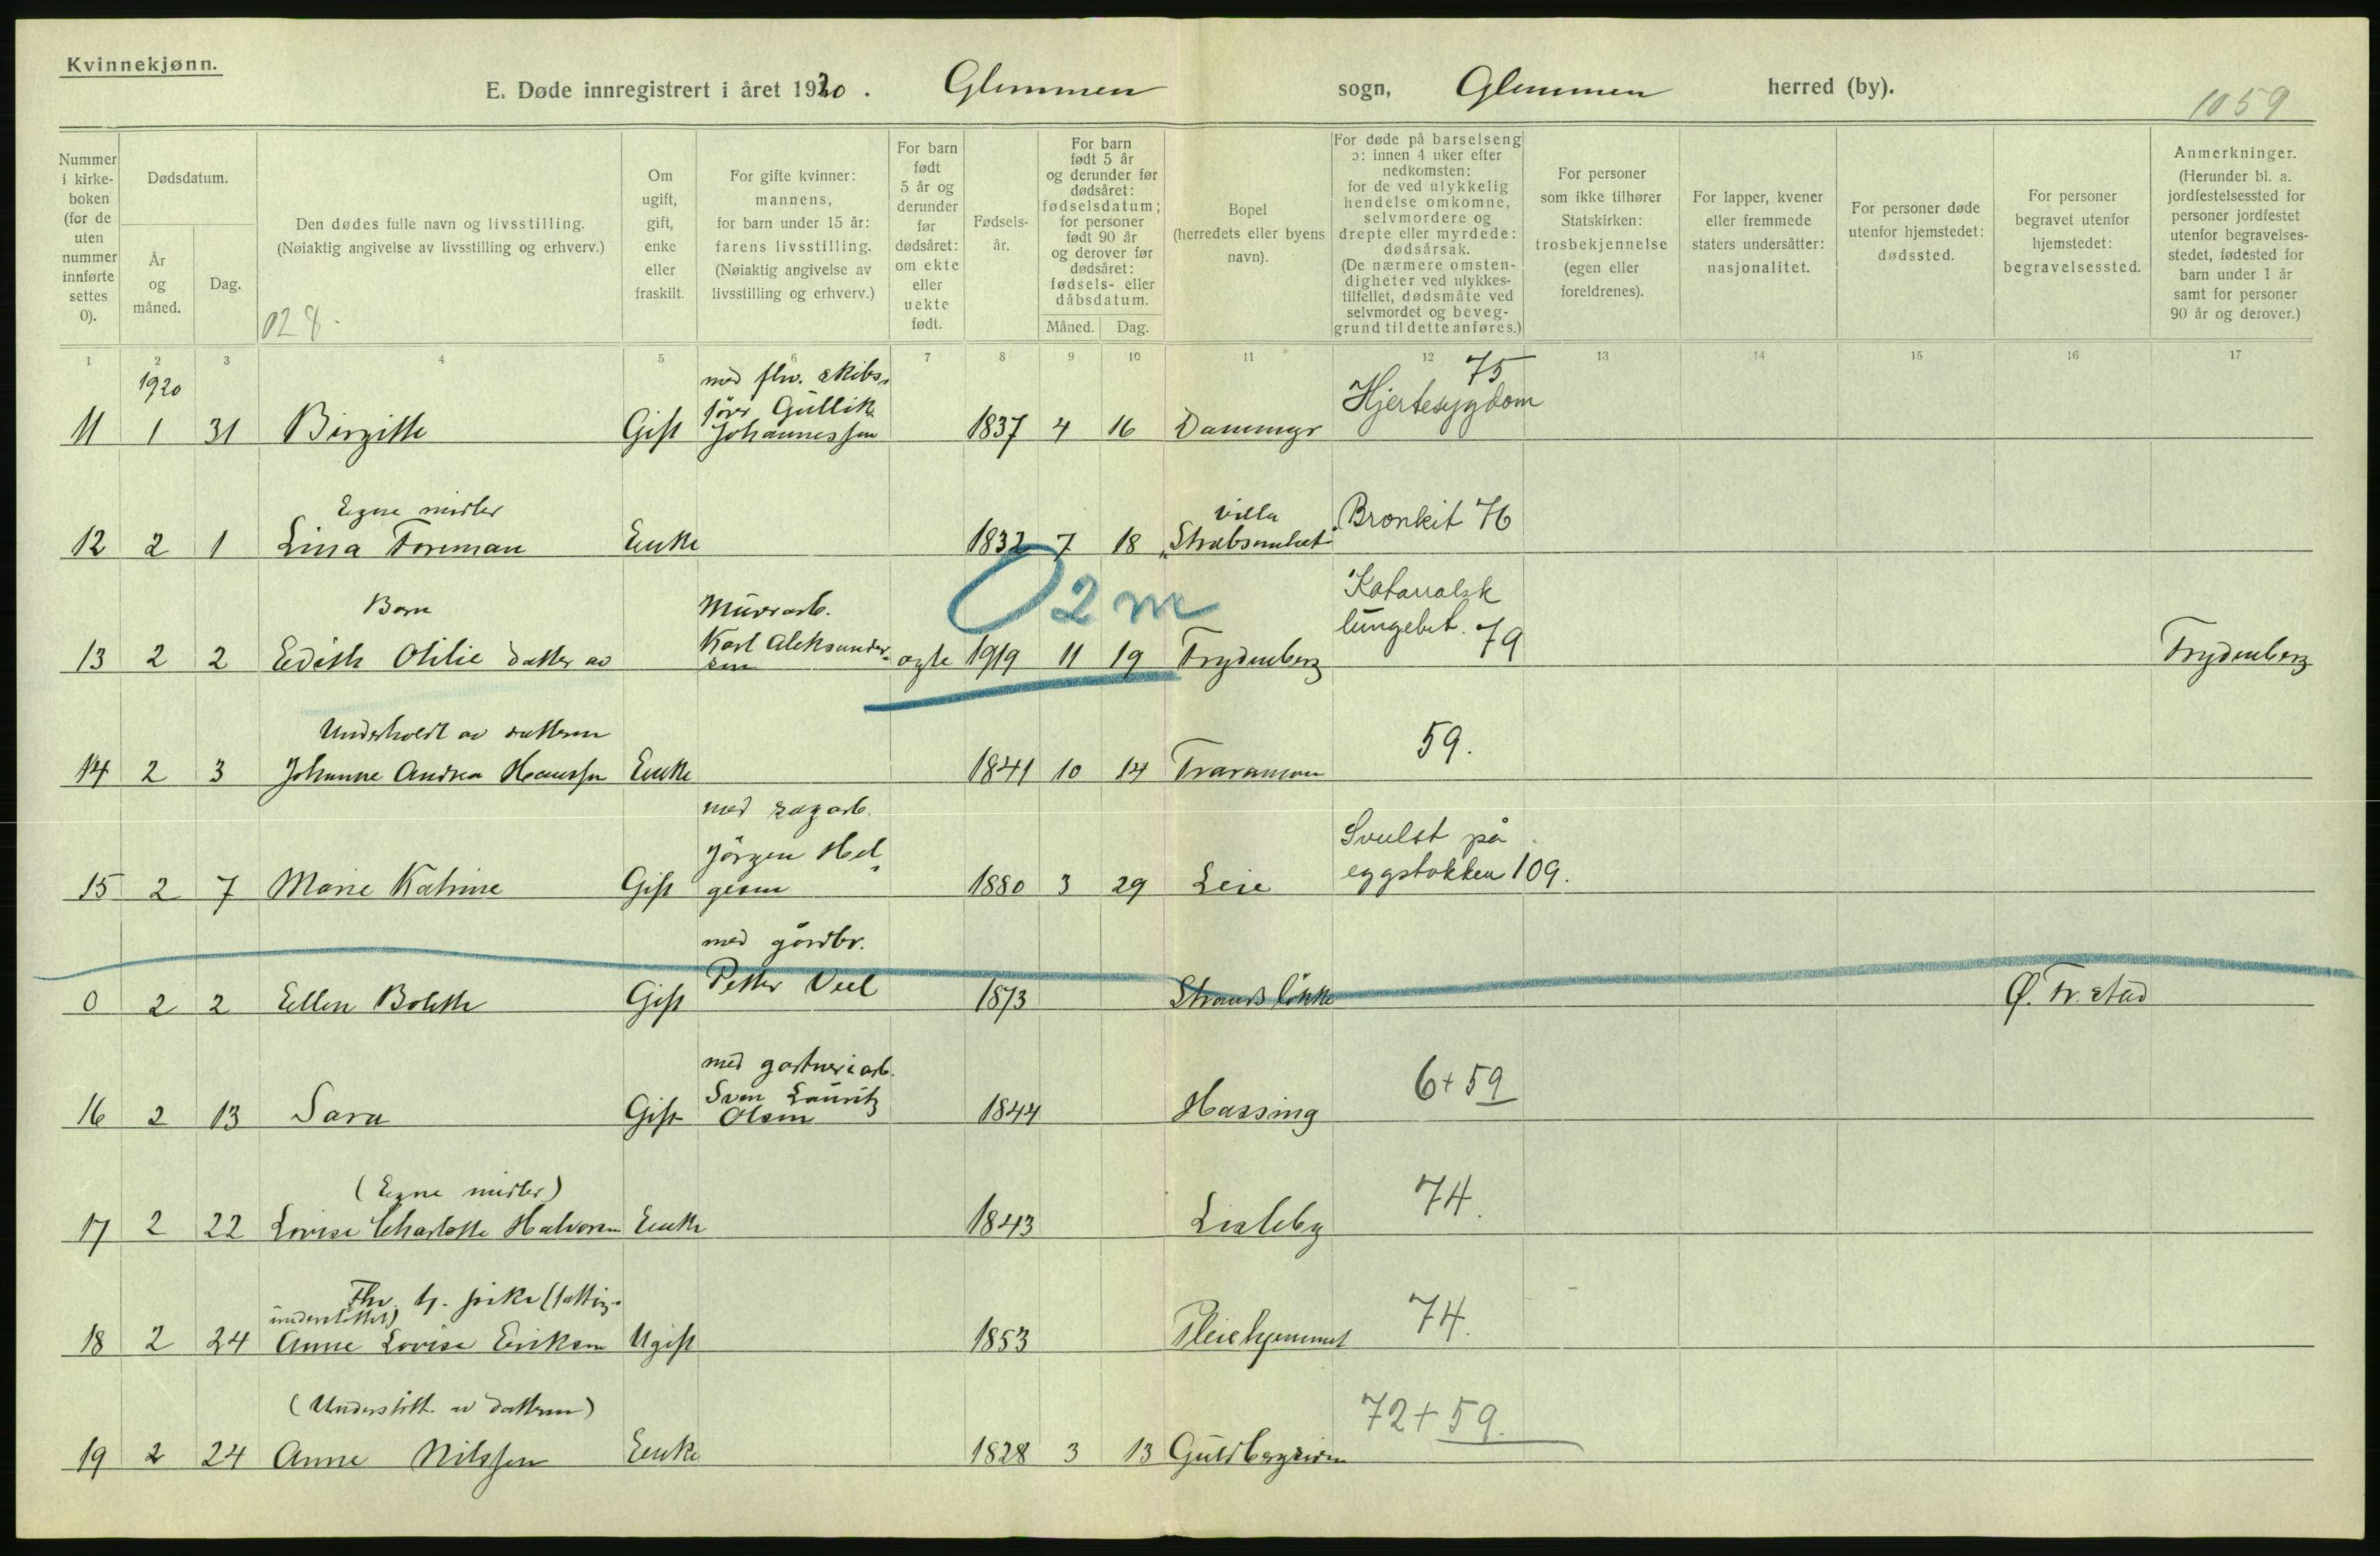 Kvinnekjønn.
E. Døde innregistrert i året 1920. Glemmen sogn, Glemmen herred (by).
1059
Nummer i kirkeboken (for de uten nummer innførte settes 0).
Dødsdatum.
År og måned.
Dag.
Den dødes fulle navn og livsstilling.
(Nøiaktig angivelse av livsstilling og erhverv.)
028.
Om ugift, gift, enke eller fraskilt.
For gifte kvinner: mannens, for barn under 15 år: farens livsstilling. (Nøiaktig angivelse av livsstilling og erhverv.)
For barn født 5 år og derunder før dødsåret: om ekte eller uekte født.
Fødselsår.
For barn født 5 år og derunder før dødsåret: fødselsdatum; for personer født 90 år og derover før dødsåret: fødsels- eller dåbsdatum.
Måned. Dag.
Bopel (herredets eller byens navn).
For døde på barselseng ɔ: innen 4 uker efter nedkomsten: for de ved ulykkelig hendelse omkomne, selvmordere og drepte eller myrdede: dødsårsak. (De nærmere omstendigheter ved ulykkestilfellet, dødsmåte ved selvmordet og beveggrund til dette anføres.)
For personer som ikke tilhører Statskirken: trosbekjennelse (egen eller foreldrenes).
For lapper, kvener eller fremmede staters undersåtter: nasjonalitet.
For personer døde utenfor hjemstedet: dødssted.
For personer begravet utenfor hjemstedet: begravelsessted.
Anmerkninger. (Herunder bl. a. jordfestelsessted for personer jordfestet utenfor begravelsesstedet, fødested for barn under 1 år samt for personer 90 år og derover.)
1 2 3 4 5 6 7 8 9 10 11 12 13 14 15 16 17
1920
med fhv. skibs-
fører Gullik
75
Hjertesygdom
11 1 31 Birgitte Gift Johannessen 1837 4 16 Dammyr
Egne midler
villa
Bronkit 76
12 2 1 Lina Foreman Enke 1832 7 18 "Stræbsomhet"
02 m
Barn
Murarb.
Karl Aleksander-
sen
Katarralsk
lungebet. 79
13 2 2 Edith Otilie datter av ægte 1919 11 19 Frydenberg Frydenberg
Underholdt av datteren
59.
14 2 3 Johanne Andrea Hanssen Enke 1841 10 14 Traramoen
med sagarb.
Jörgen Hel-
Svulst på
eggstokken 109.
15 2 7 Marie Katrine Gift gesen 1880 3 29 Leie
med gårdbr.
0 2 2 Ellen Bolette Gift Petter Veel 1873 Strandsløkke Ø. Fr.stad
med gartneriarb.
Sven Lauritz
6 + 59
16 2 13 Sara Gift Olsen 1844 Hassing
(Egne midler)
74.
17 2 22 Lovise Charlotte Halvorsen Enke 1843 Lisleby
Fhv. tj. pike (fattig-
understøttet)
74.
18 2 24 Anne Lovise Eriksen Ugift 1853 Pleiehjemmet
(Understött. av datteren)
72 + 59.
19 2 24 Anne Nilssen Enke 1828 3 13 Guldbergsiden